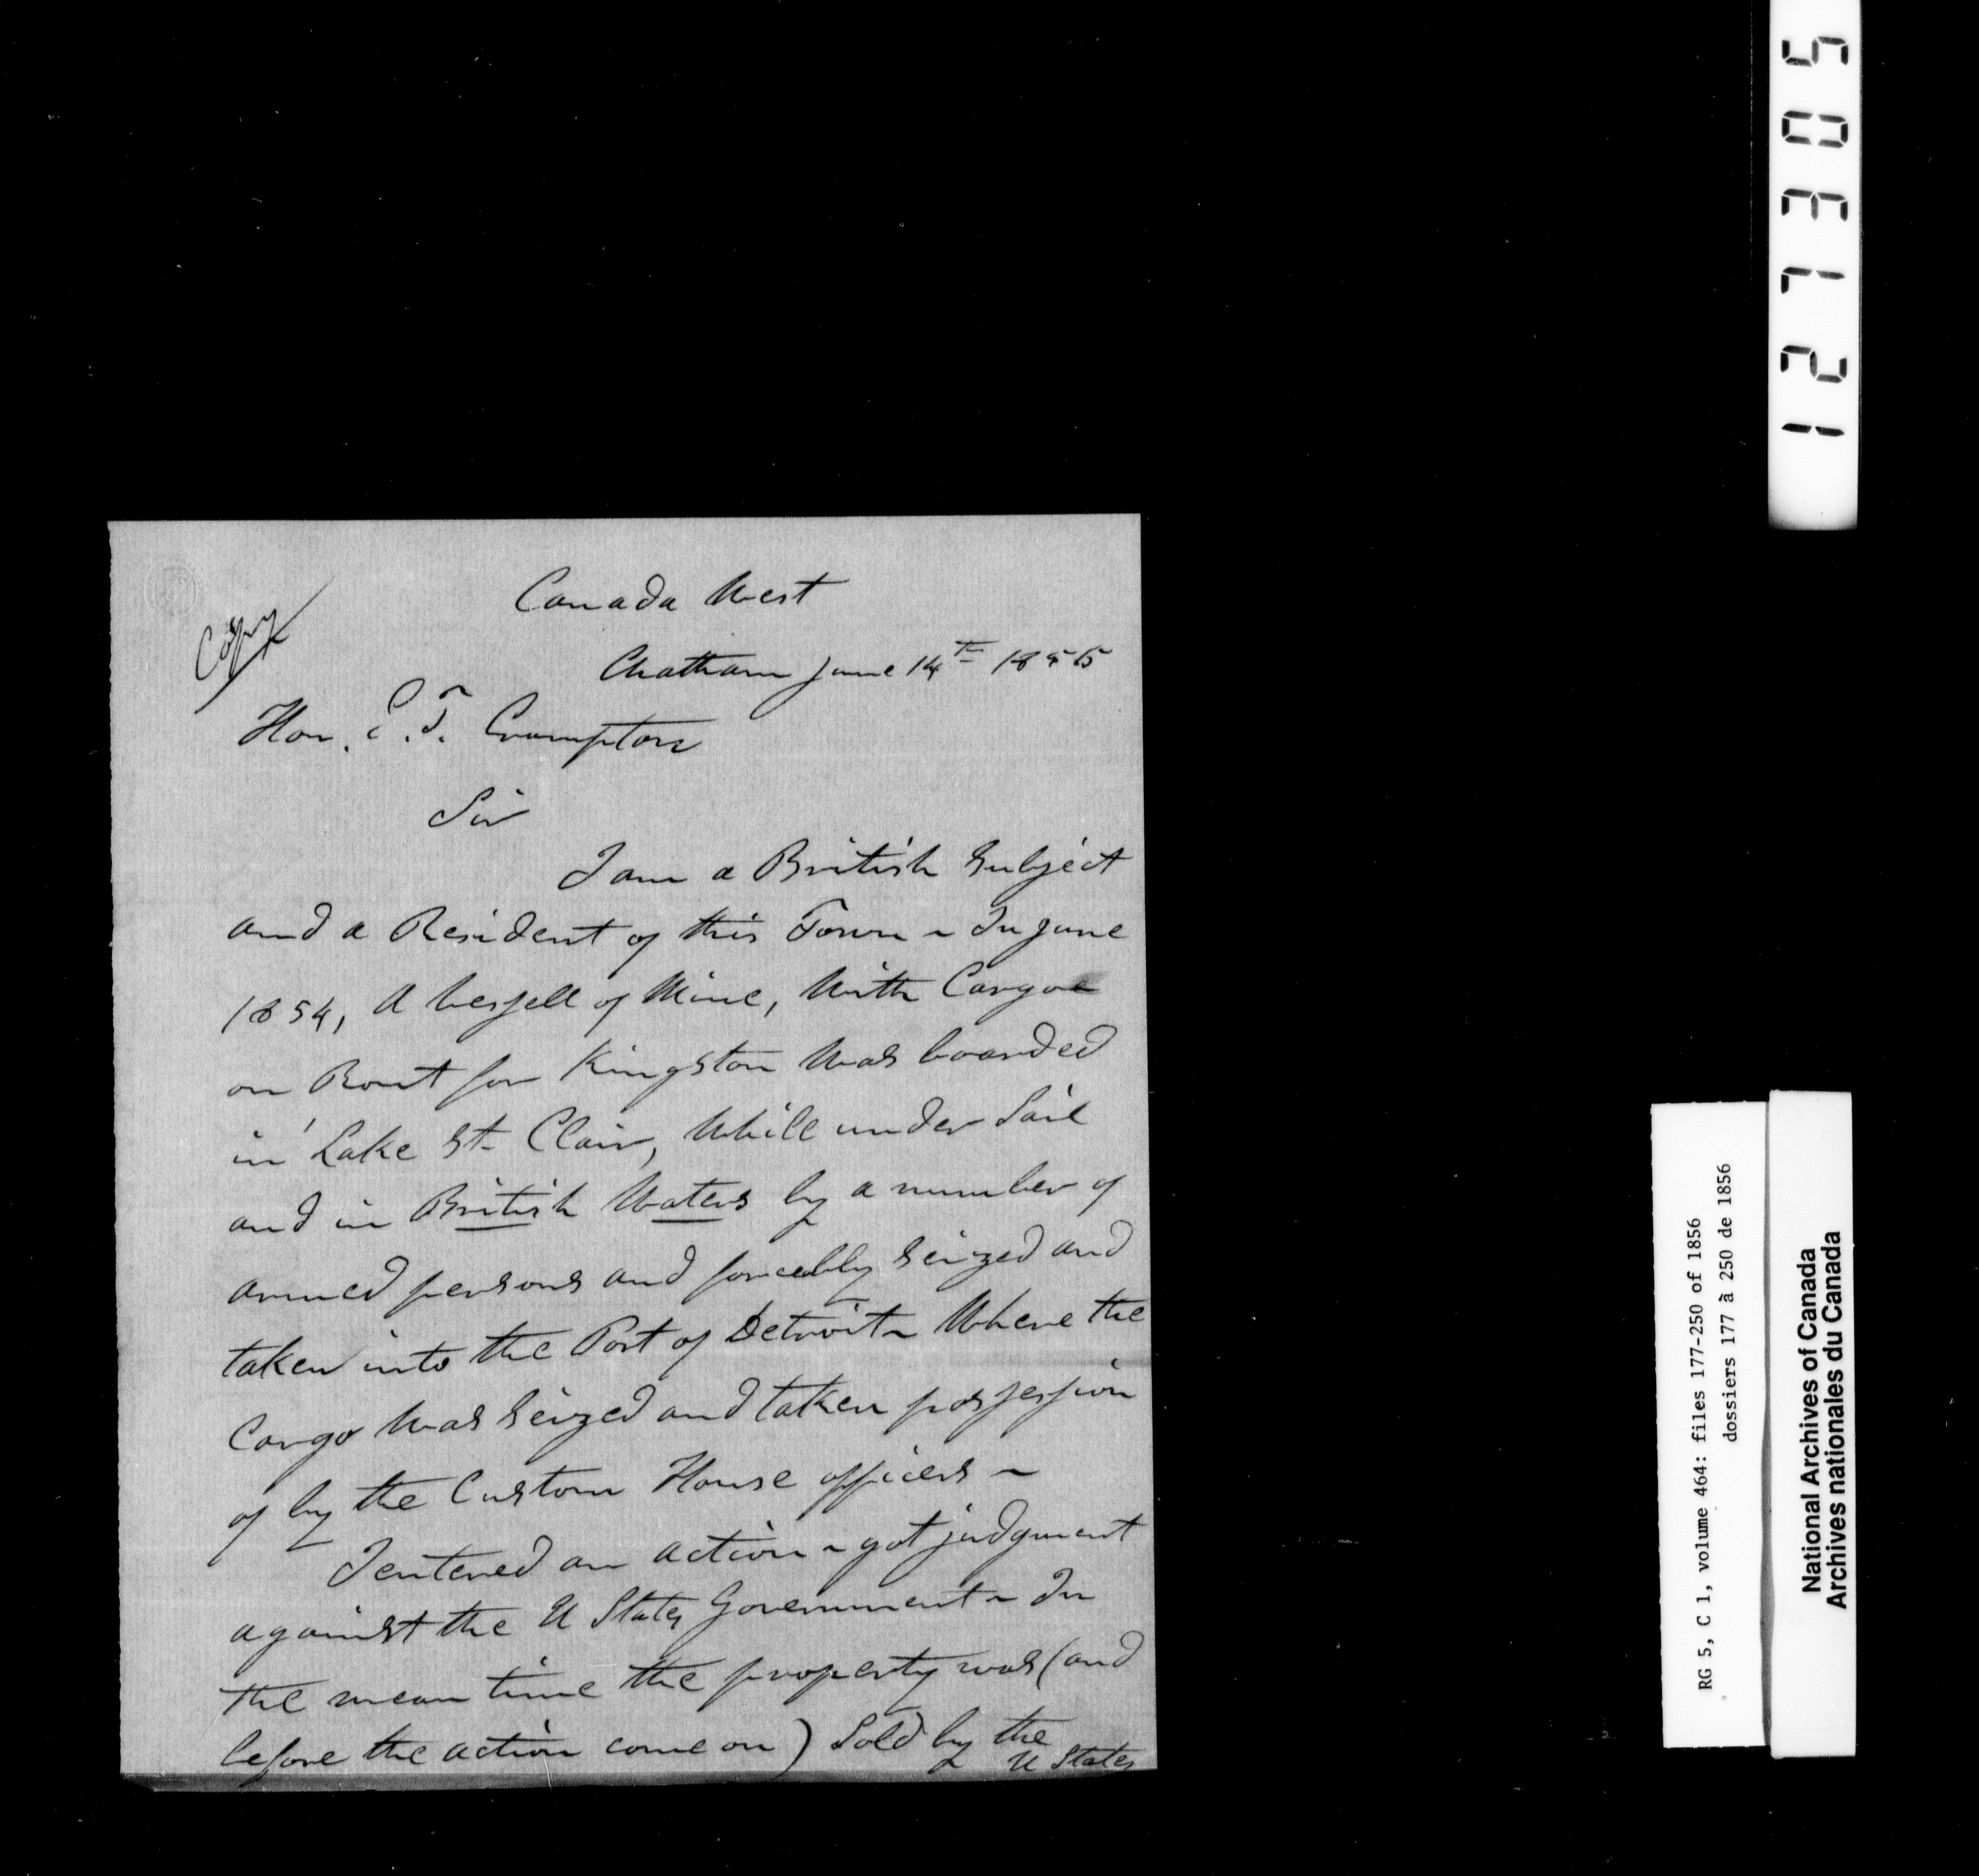 Canada West
Copy
Chatham June 14th 1855
Hon. P. T. Crampton
Sir
I am a British Subject
and a Resident of this Town ~ In June
1854, A Vessell of Mine, With Cargoe
on Rout for Kingston Was boarded
in Lake St. Clair, While under Sail
and in British Waters by a number of
armed persons and forcebly Seized and
taken into the Port of Detroit ~ Where the
Cargo Was Seized and taken possession
of by the Custom House officers ~
I entered an action ~ got judgment
against the U States Government ~ In
the mean time the property was (and
before the action come on) Sold by the
U States
127305
RG 5, C 1, volume 464: files 177-250 of 1856
dossiers 177 à 250 de 1856
National Archives of Canada
Archives nationales du Canada